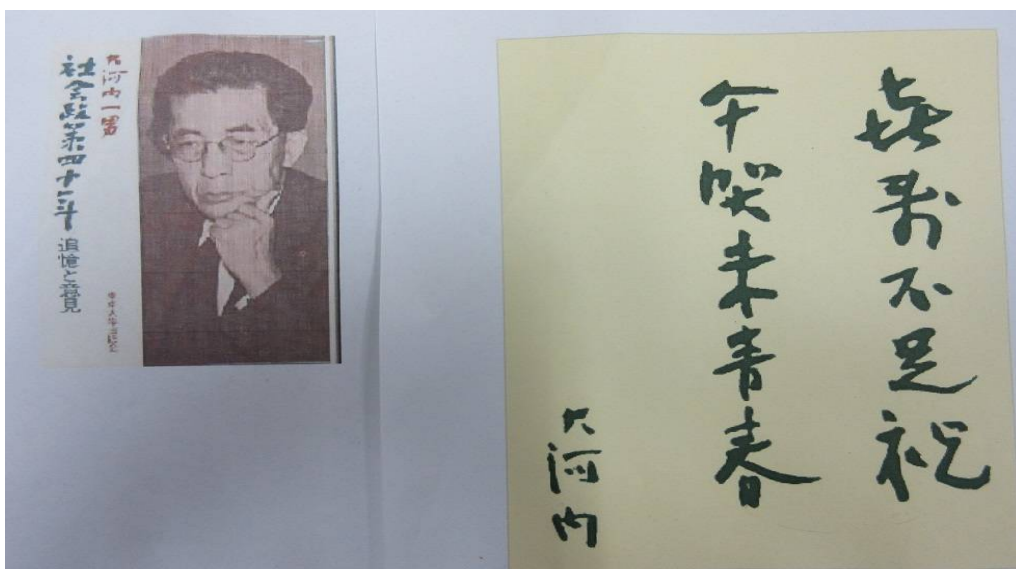 大河内一男
社会政策四十年
追憶と意見
東京大学出版会
喜寿不足祝
咲未青春
大河内